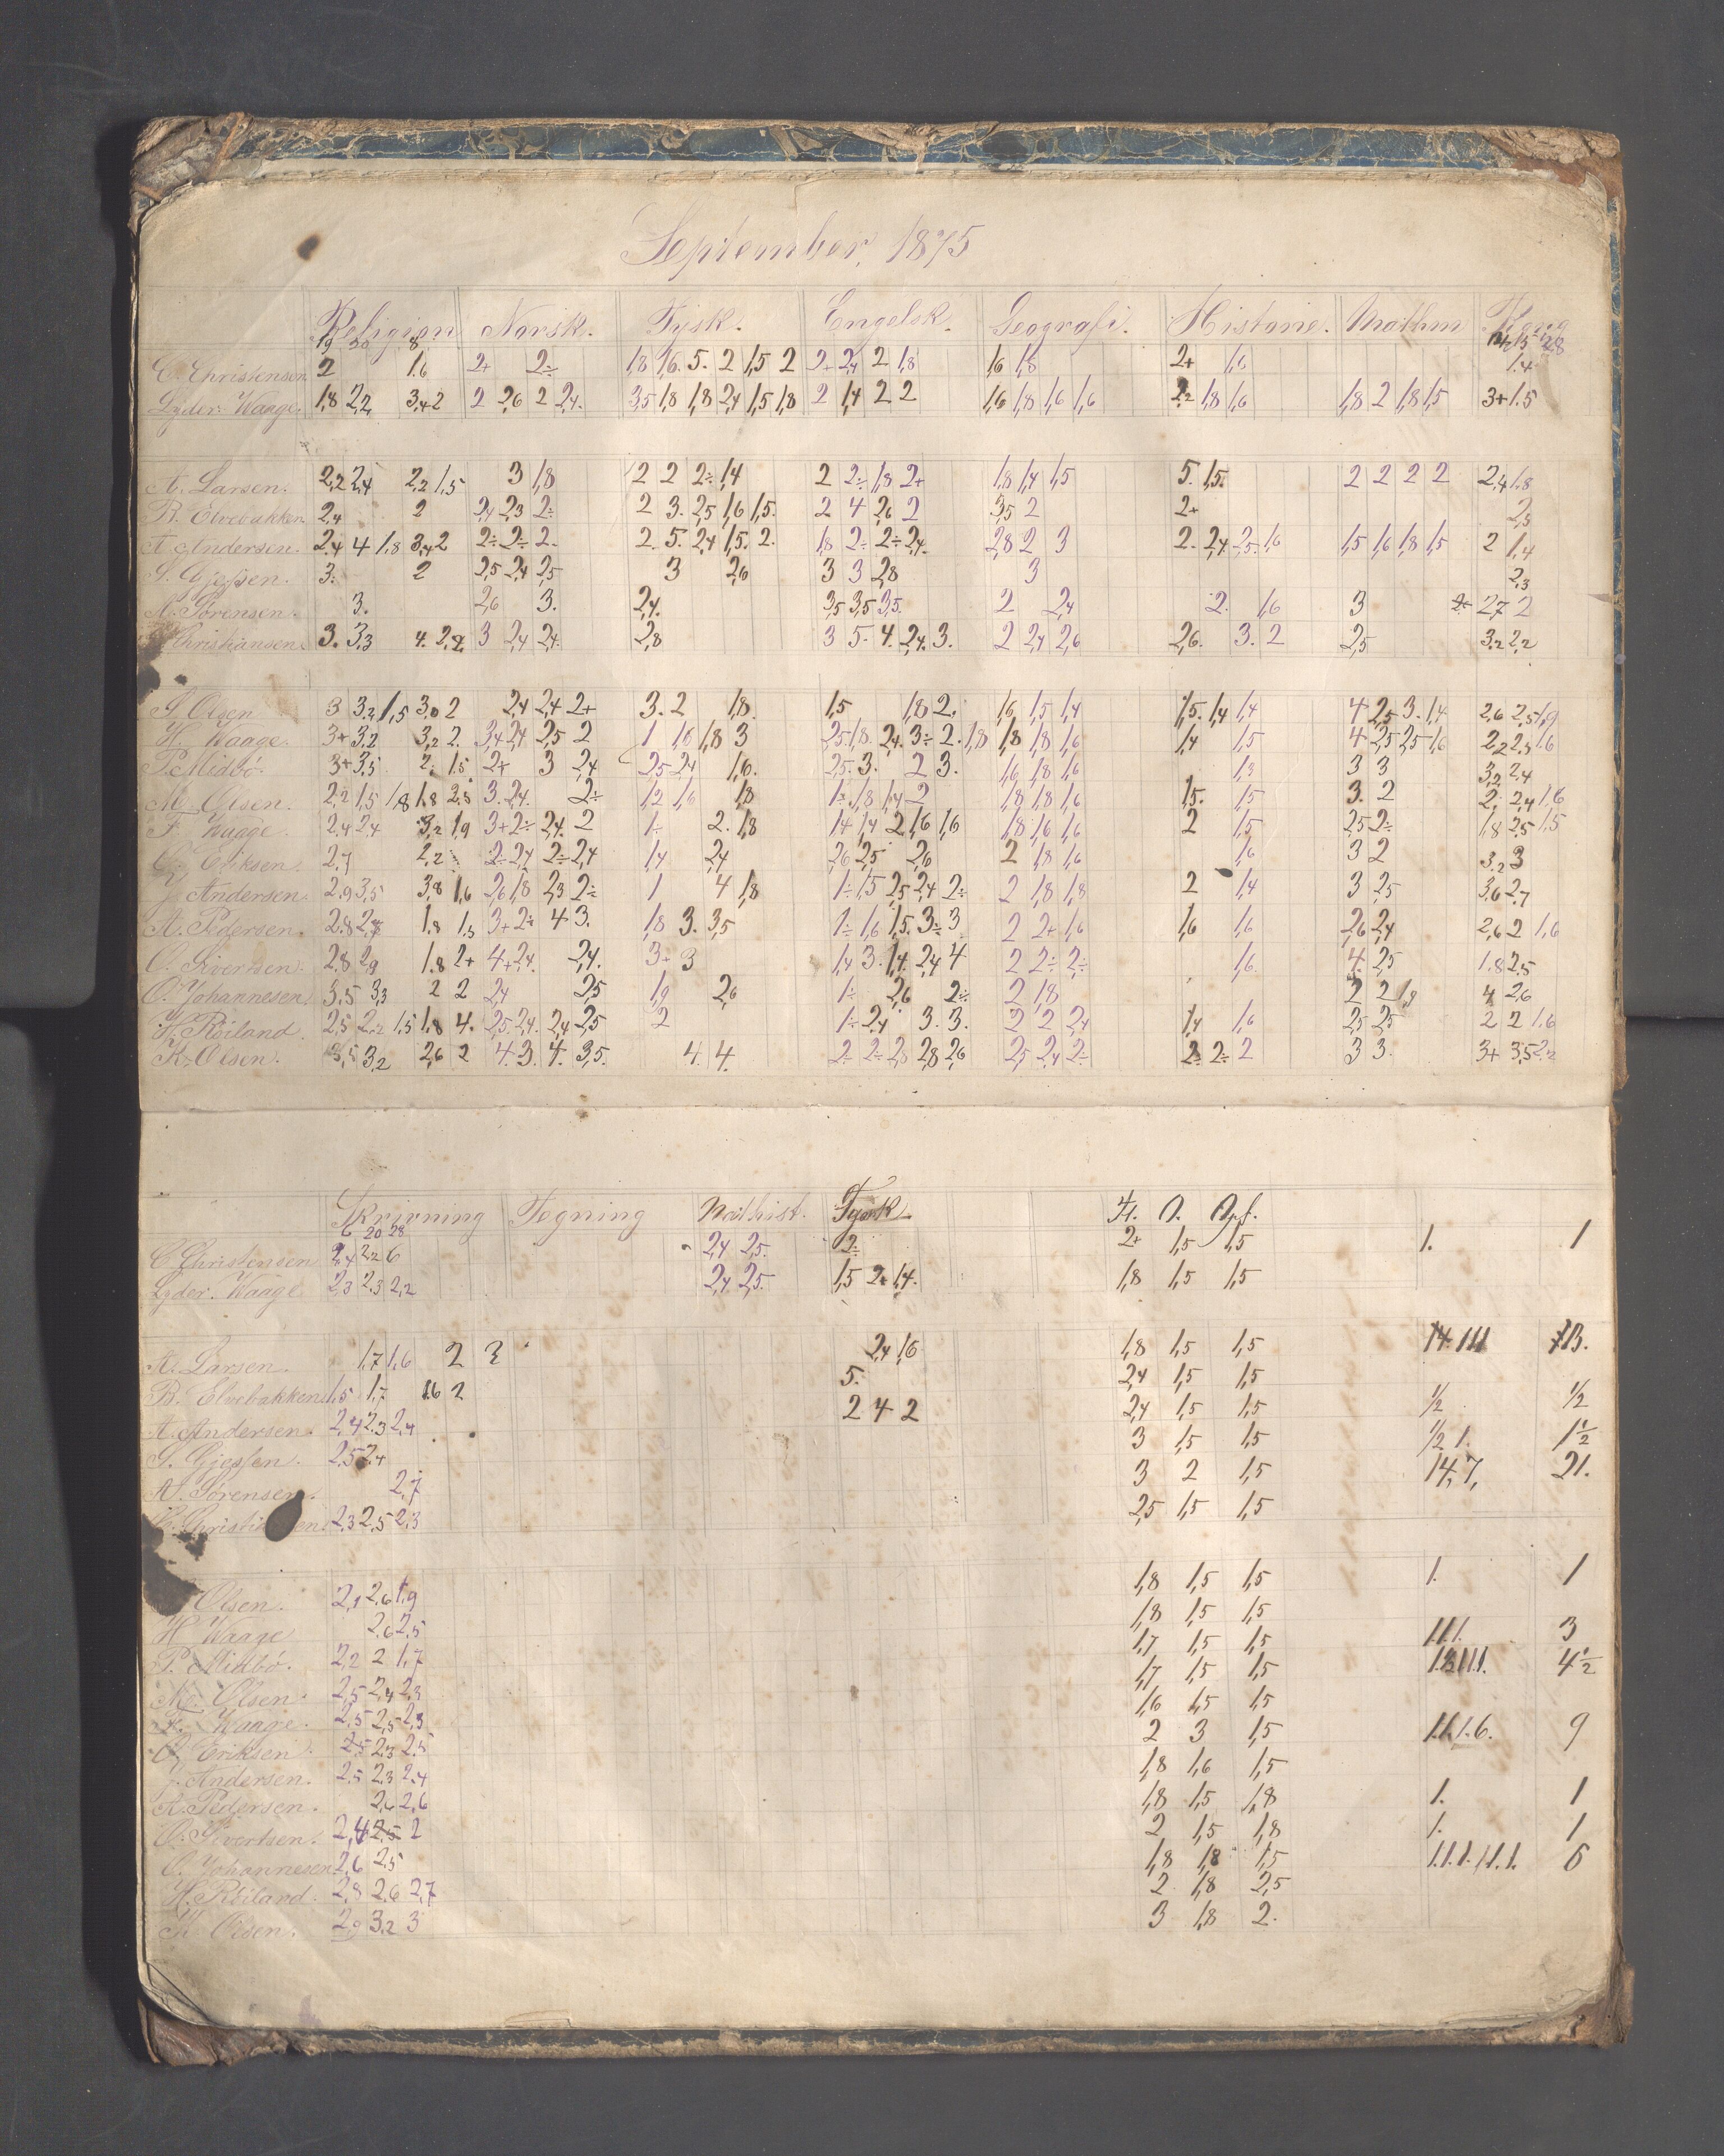 September, 1875
Religion Norsk. Tysk. Engelsk. Geografi. Historie. Mathm Regng
19 30 8 14 15 28
C. Christensen 2 1,6 2+ 2÷ 1,8 1,6. 5. 2 1,5 2 2+ 2,4 2 1,8 1,6 1,8 2+ 1,6 1.4
Lyder Waage. 1,8 2,2 3,4 2 2 2,6 2 2,4. 3,5 1,8 1,8 2,4 1,5 1,8 2 1,4 2 2 1,6 1,8 1,6 1,6 2,2 1,8 1,6 1,8 2 1,8 1,5 3+ 1.5
A. Larsen. 2,2 2,4 2,2 1,5 3 1,8 2 2 2÷ 1,4 2 2÷ 1,8 2+ 1,8 1,4 1,5 5. 1,5. 2 2 2 2 2,4 1,8
B. Elvebakken 2,4 2 2,4 2,3 2÷ 2 3. 2,5 1,6 1,5. 2 4 2,6 2 3,5 2 2+ 2,5
A. Andersen. 2,4 4 1,8 3,4 2 2÷ 2÷ 2- 2. 5. 2,4 1,5. 2. 1,8 2÷ 2÷ 2,4. 2,8 2 3 2. 2,4 2,5. 1,6 1,5 1,6 1,8 1,5 2 1,4
S. Gjessen. 3. 2 2,5 2,4 2,5 3 2,6 3 3 2,8 3 2,3
A. Sørensen. 3. 2,6 3. 2,4. 3,5 3,5 3,5. 2 2,4 2. 1,6 3 2,7 2
Christiansen. 3. 3,3 4. 2,2. 3 2,4 2,4. 2,8 3 5. 4. 2,4. 3. 2 2,4 2,6 2,6. 3. 2 2,5 3,2 2,2
S. Olsen 3 3,2 1,5 3,0 2 2,4 2,4 2+ 3. 2 1,8. 1,5 1,8 2. 1,6 1,5 1,4 1,5. 1,4 1,4 4 2,5 3. 1,4 2,6 2,5 1,9
H. Waage. 3+ 3,2 3,2 2. 3,4 2,4 2,5 2 1 1,6 1,8 3 2,5. 1,8. 2,4. 3÷ 2. 1,8 1,8 1,8 1,6 1,4 1,5 4 2,5 2,5 1,6 2,2 2,3 1,6
P. Midbö. 3+ 3,5 2÷ 1,5 2+ 3 2,4 2,5 2,4 1,6. 2,5. 3. 2 3. 1,6 1,8 1,6 1,3 3 3 3,2 2,4
M. Olsen. 2,2 1,5 1,8 1,8 2,5 3. 2,4. 2÷ 1,2 1,6 1,8 1÷ 1,8 1,4 2 1,8 1,8 1,6 1,5. 1,5 3. 2 2, 2,4 1,6
F. Waage. 2,4 2,4 3,2 1,9 3+ 2÷ 2,4. 2 1÷ 2. 1,8 1,4 1,4 2 1,6 1,6 1,8 1,6 1,6 2 1,5 2,5 2÷ 1,8 2,5 1,5
Eriksen. 2,7 2,2 2÷ 2,4 2÷ 2,4 1,4 2,4 2,6 2,5 2,6 2 1,8 1,6 1,6 3 2 3,2 3
J. Andersen. 2,9 3,5 3,8 1,6 2,6 1,8 2,3 2÷ 1 4 1,8 1÷ 1,5 2,5 2,4 2÷ 2 1,8 1,8 2 1,4 3 2,5 3,6 2,7
A. Pedersen. 2,8 2,7 1.8 1,3 3+ 2÷ 4 3. 1,8 3. 3,5 1÷ 1,6 1,5. 3÷ 3 2 2+ 1,6 1,6 1,6 2,6 2,4 2,6 2 1,6
O. Sivertsen. 2,8 2,9 1.8 2+ 4+ 2,4. 2,4. 3+ 3 1,4 3. 1,4. 2,4 4 2 2÷ 2÷ 1,6. 4. 2,5 1.8 2,5
O. Johannesen. 3,5 3,3 2 2 2,4 2,5 1,9 2,6 1÷ 2,6 2÷ 2 1,8 2 2 1,9 4 2,6
H. Röiland. 2,5 2,2 1,5 1,8 4. 2,5. 2,4. 2,4 2,5 2 1÷ 2,4 3. 3. 2 2 2,4 1,4 1,6 2,5 2,5 2 2 1,6
K. Olsen. 3,5 3,2 2,6 2 4. 3. 4. 3,5. 4. 4. 2÷ 2÷ 2,8 2,8 2,6 2,5 2,4 2÷ 2÷ 2÷ 2 3 3. 3+ 3,5 2,2
Skrivning Tegning Nathist. Tysk Fl. O. Opf.
6 20 28
C. Christensen 2,4 2,2 6 2,4 2,5. 2÷ 2+ 1,5 1,5 1. 1
Lyder. Waage 2,3 2,3 2,2 2,4. 2,5. 1,5 2+ 1,4. 1,8 1,5 1,5
A. Larsen. 1,7 1,6 2 3 2,4 1,6 1,8 1,5 1,5 14. 1 1 1 13.
B. Elvebakken. 1,5 1,7 1.6 2 5. 2,4 1,5 1,5
A. Andersen. 2,4 2,3 2,4 2 4 2 2,4 1,5 1,5 1/2 1/2
S. Gjessen. 2,5 2,4 3 1,5 1,5 1/2 1. 1 1/2
A. Sørensen. 2,7 3 2 1,5 14. 7, 21.
2,3 2,5 2,3 2,5 1,5 1,5
Olsen. 2,1 2,6 1,9 1,8 1,5 1,5 1. 1
H. Waage 2,6 2,5 1,8 1,5 1,5
P. Midbö. 2,2 2 1,7 1,7 1,5 1,5 1.1.1. 3
M. Olsen. 2,5 2,4 2,3 1,7 1,5 1,5 4 1/2
F. Waage. 2,5 2,5 2,3 1,6 1,5 1,5
Eriksen. 2,5 2,3 2,5 2 3 1,5 1.1.1.6. 9
J. Andersen. 2,5 2,3 2,4 1,8 1,6 1,5
A. Pedersen. 2,6 2,6 1,8 1,5 1,8 1. 1
O. Sivertsen. 2,4 2,5 2 2 1,5 1,8 1. 1
O. Johannesen 2,6 2,5 1,8 1,8 1,5 1.1.1.1.1.1. 6
H. Röiland. 2,8 2,6 2,7 2 1,8 2,5
K. Olsen. 2,9 3,2 3 3 1,8 2.